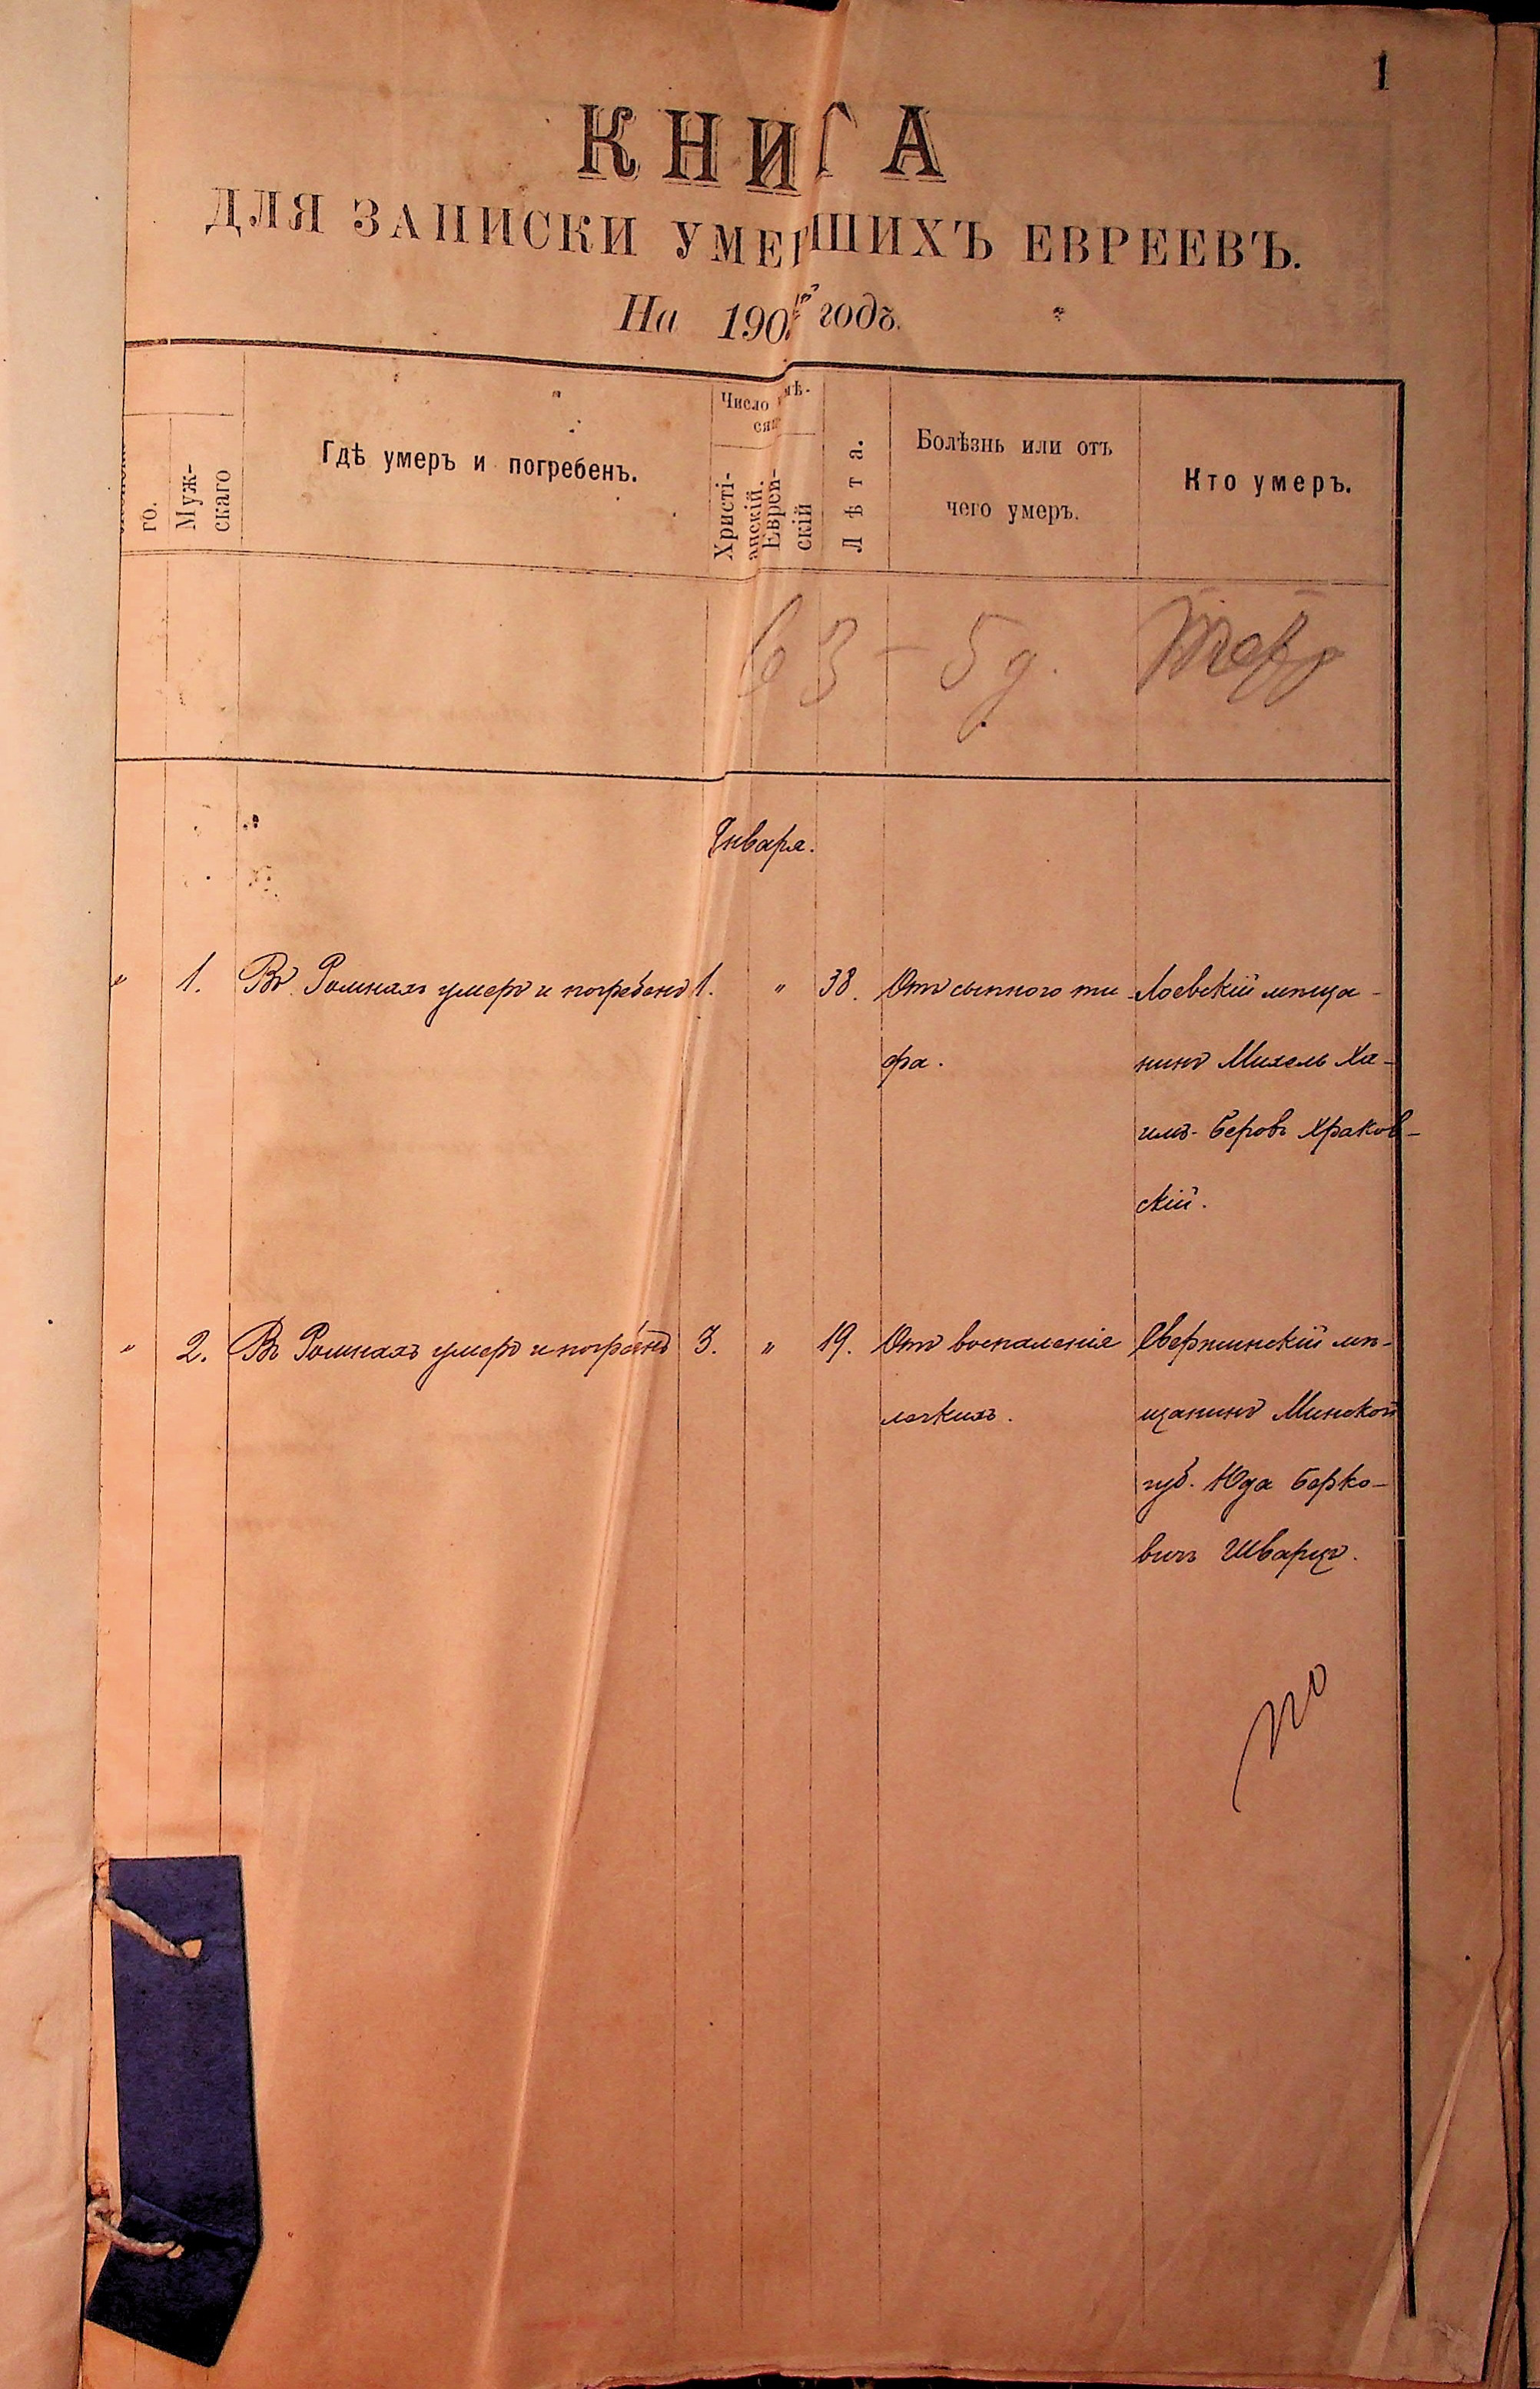 1
КНИГА
ДЛЯ ЗАПИСКИ УМЕРШИХЪ ЕВРЕЕВЪ.
На 190 годъ.
го.
Муж-
скаго
Гдѣ умеръ и погребенъ.
Число мѣ-
сяц
Христі-
анскій.
Еврей-
скій
Лѣта.
Болѣзнь или отъ
чего умеръ.
Кто умеръ.
63 - 5 д.
Января.
" 1. Въ Ромнахъ умеръ и погребенъ 1. " 38. Отъ сыпного ти- Лоевскій мѣща-
фа. нинъ Михель Ха-
имъ-Беровъ Храков-
скій.
" 2. Въ Ромнахъ умеръ и погребенъ 3. " 19. Отъ воспаленія Свержинскій мѣ-
легкихъ. щанинъ Минской
губ. Юда Берко-
вичъ Шварцъ.